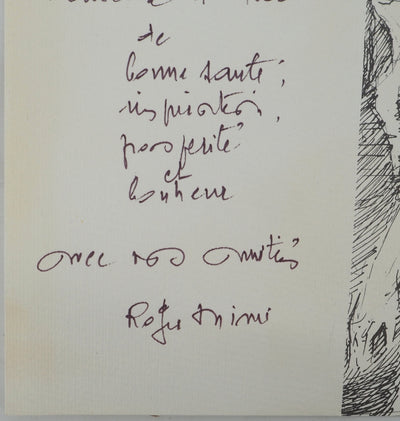 de
bonne santé,
inspiration,
prospérité
et
bonheur
avec nos amitiés
Roger Mimi